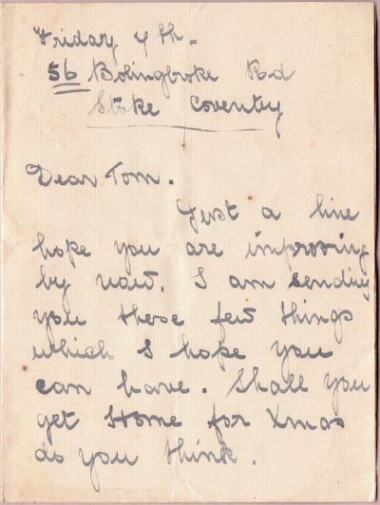 Friday 4th.
56 Bolingbroke Rd
Stoke Coventry
Dear Tom.
Just a line
hope you are improving
by now. I am sending
you these few things
which I hope you
can have. Shall you
get Home for Xmas
do you think.